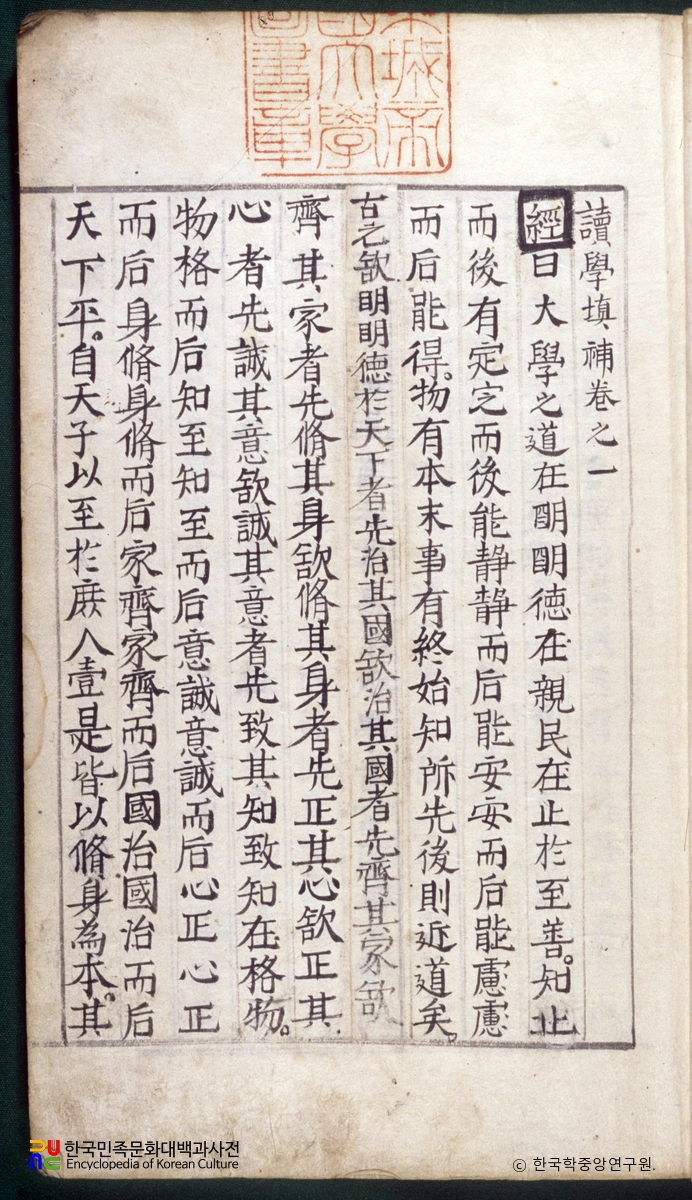 京城帝
國大學
圖書章
讀學填補卷之一
經曰大學之道在明明德在親民在止於至善。知止
而後有定定而後能静静而后能安安而后能慮慮
而后能得。物有本末事有終始知所先後則近道矣。
古之欲明明德於天下者先治其國欲治其國者先齊其家欲
齊其家者先脩其身欲脩其身者先正其心欲正其
心者先誠其意欲誠其意者先致其知致知在格物。
物格而后知至知至而后意誠意誠而后心正心正
而后身脩身脩而后家齊家齊而后國治國治而后
天下平。自天子以至於庶人壹是皆以脩身為本。其
한국민족문화대백과사전
Encyclopedia of Korean Culture
ⓒ 한국학중앙연구원.